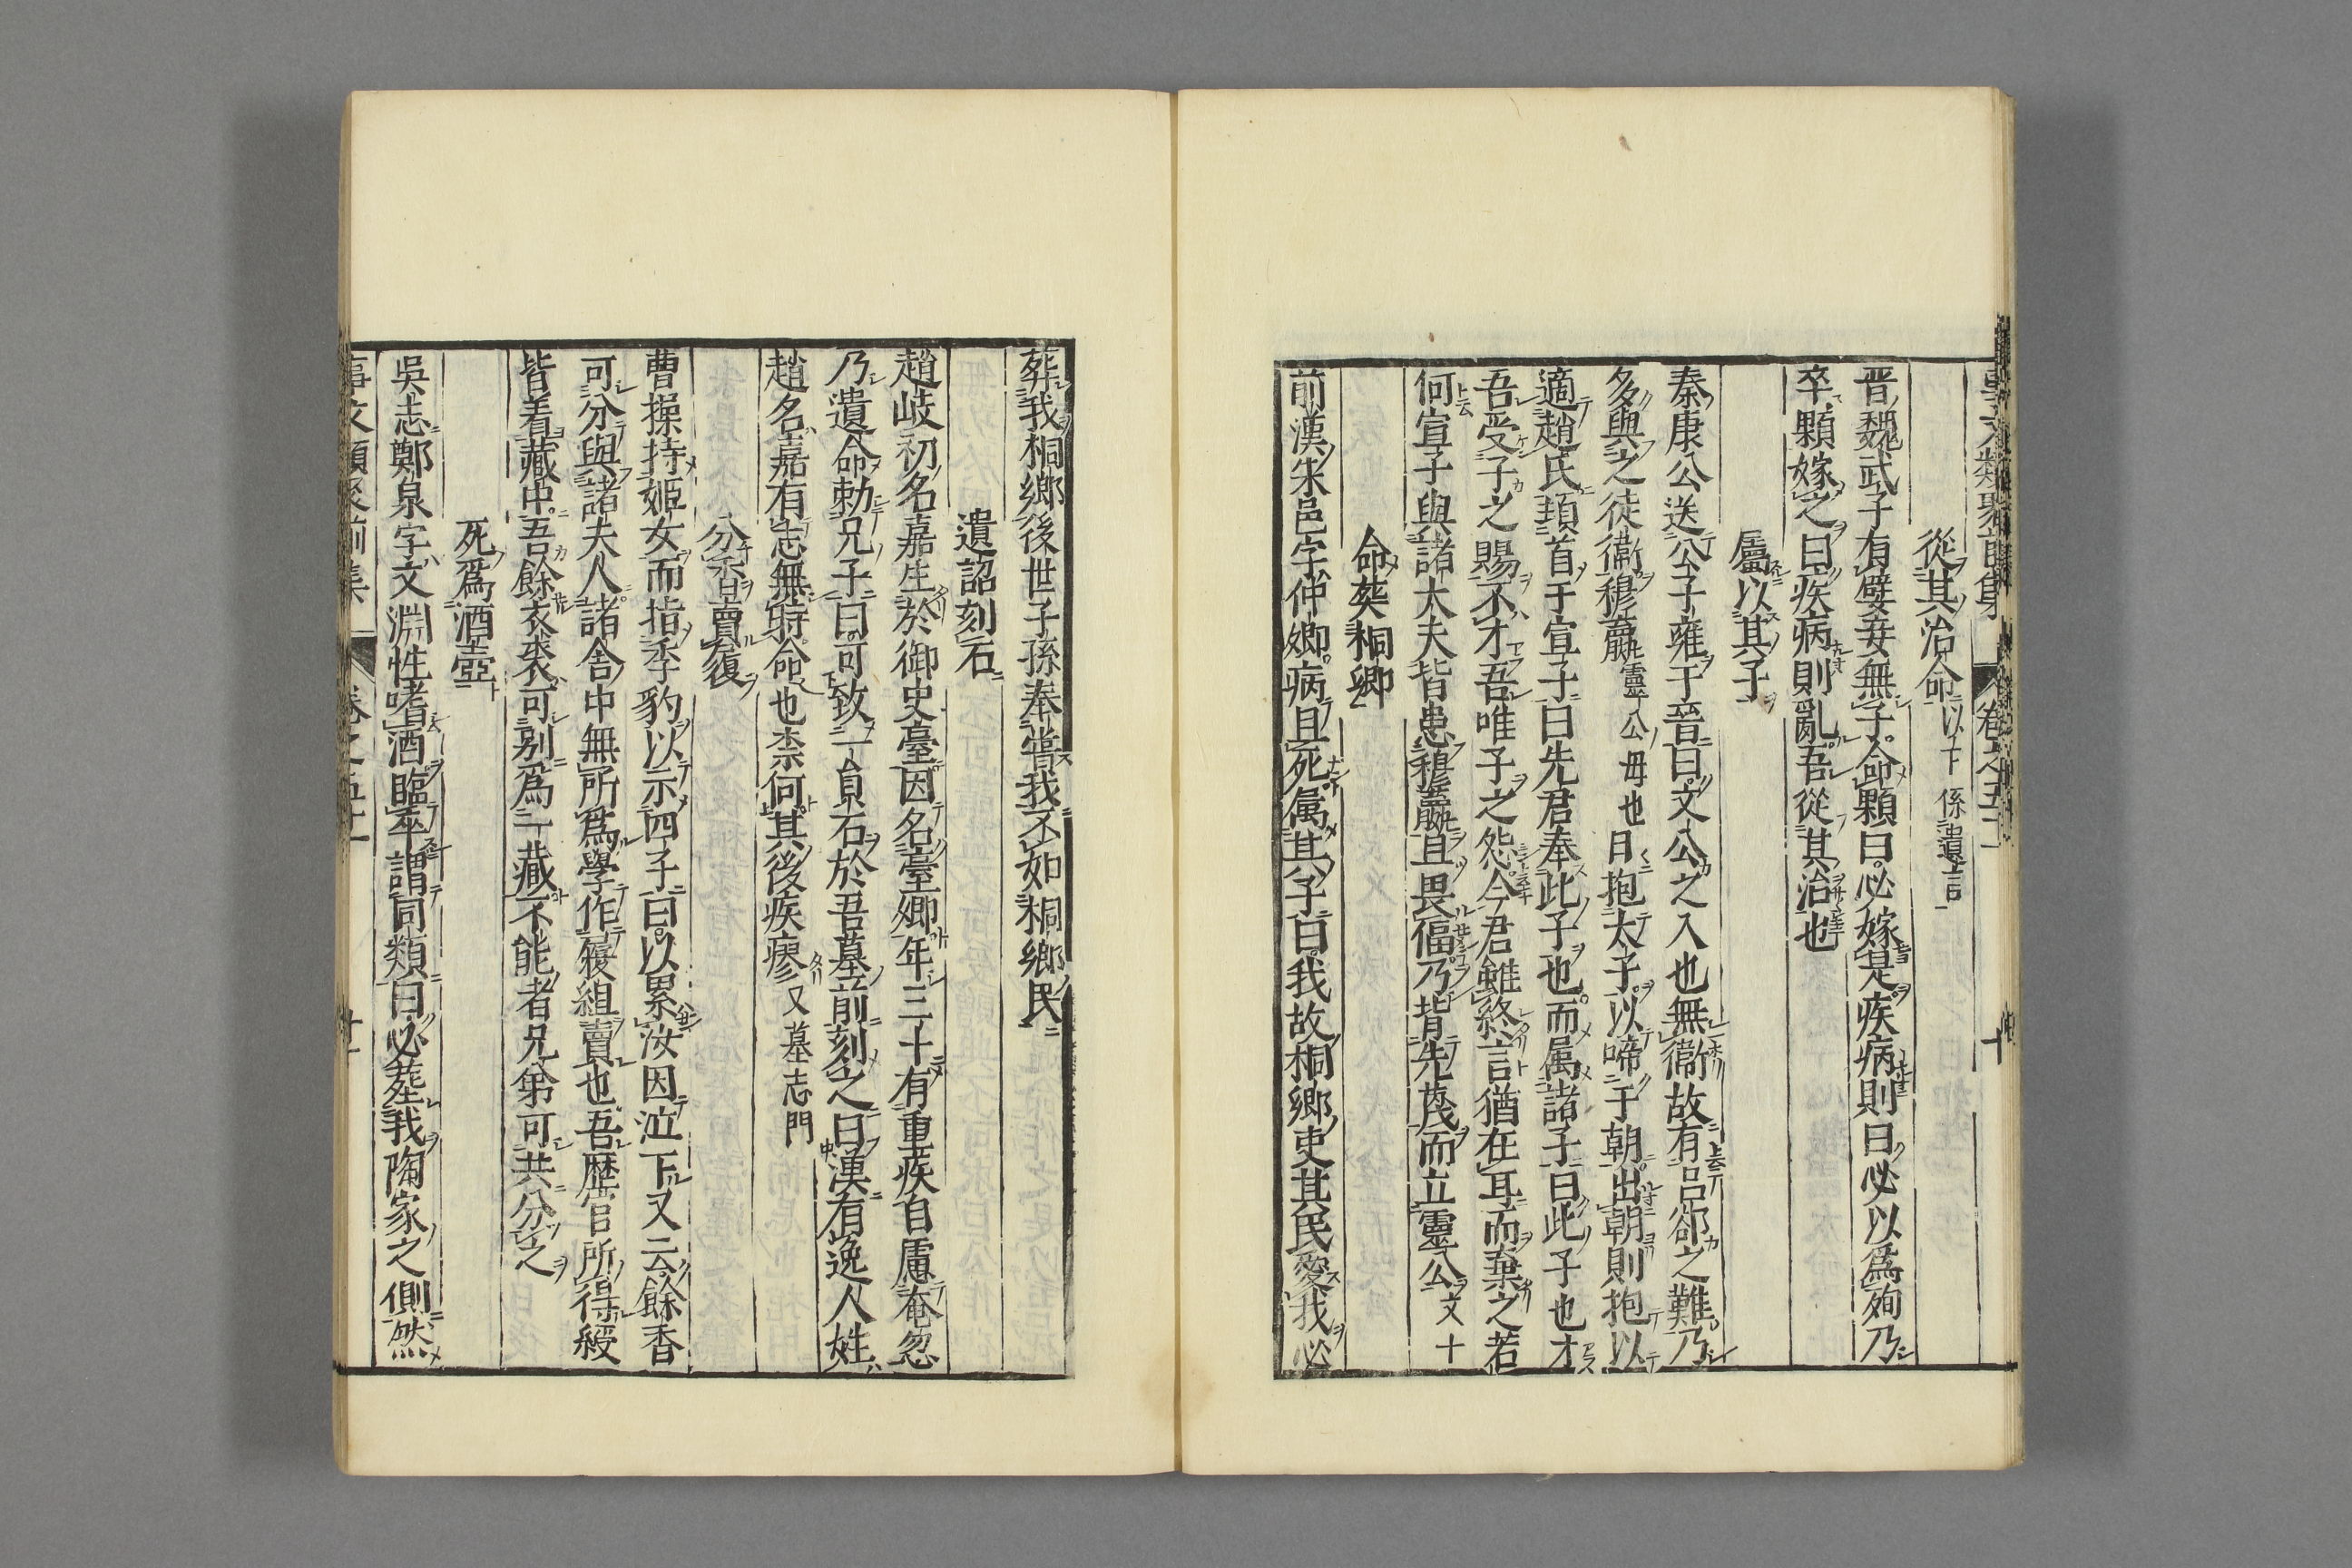 從其治命 以下係遺言
晋魏武子有嬖妾無子命顆曰必嫁是疾病則曰必以爲殉乃
卒顆嫁之曰疾病則亂吾從其治也
屬以其子
秦康公送公子雍于晉曰文公之入也無衞故有呂郤之難乃
多與之徒衞穆嬴靈公母也日抱太子以啼于朝出朝則抱以
適趙氏頓首于宣子曰先君奉此子也而属諸子曰此子也才
吾受子之賜不才吾唯子之怨今君雖終言猶在耳而棄之若
何宣子與諸大夫皆患穆嬴且畏偪乃背先蔑而立靈公文十
命葬桐鄉
前漢朱邑字仲卿病且死属其子曰我故桐鄉吏其民愛我必
葬我桐鄉後世子孫奉甞我不如桐鄉民
遺詔刻石
趙岐初名嘉生於御史臺因名臺卿年三十有重疾自慮奄忽
乃遺命勅兄子曰可致一員石於吾墓前刻之曰漢有逸人姓
趙名嘉有志無時命也柰何其後疾瘳又墓志門
分香賣履
曹操持姬女而指季豹以示四子曰以累汝因泣下又云餘香
可分與諸夫人諸舎中無所爲學作履組賣也吾歴官所得綬
皆着藏中吾餘衣裘可别爲一藏不能者兄弟可共分之
死爲酒壺
吳志鄭泉字文淵性嗜酒臨卒謂同類曰必塟我陶家之側然